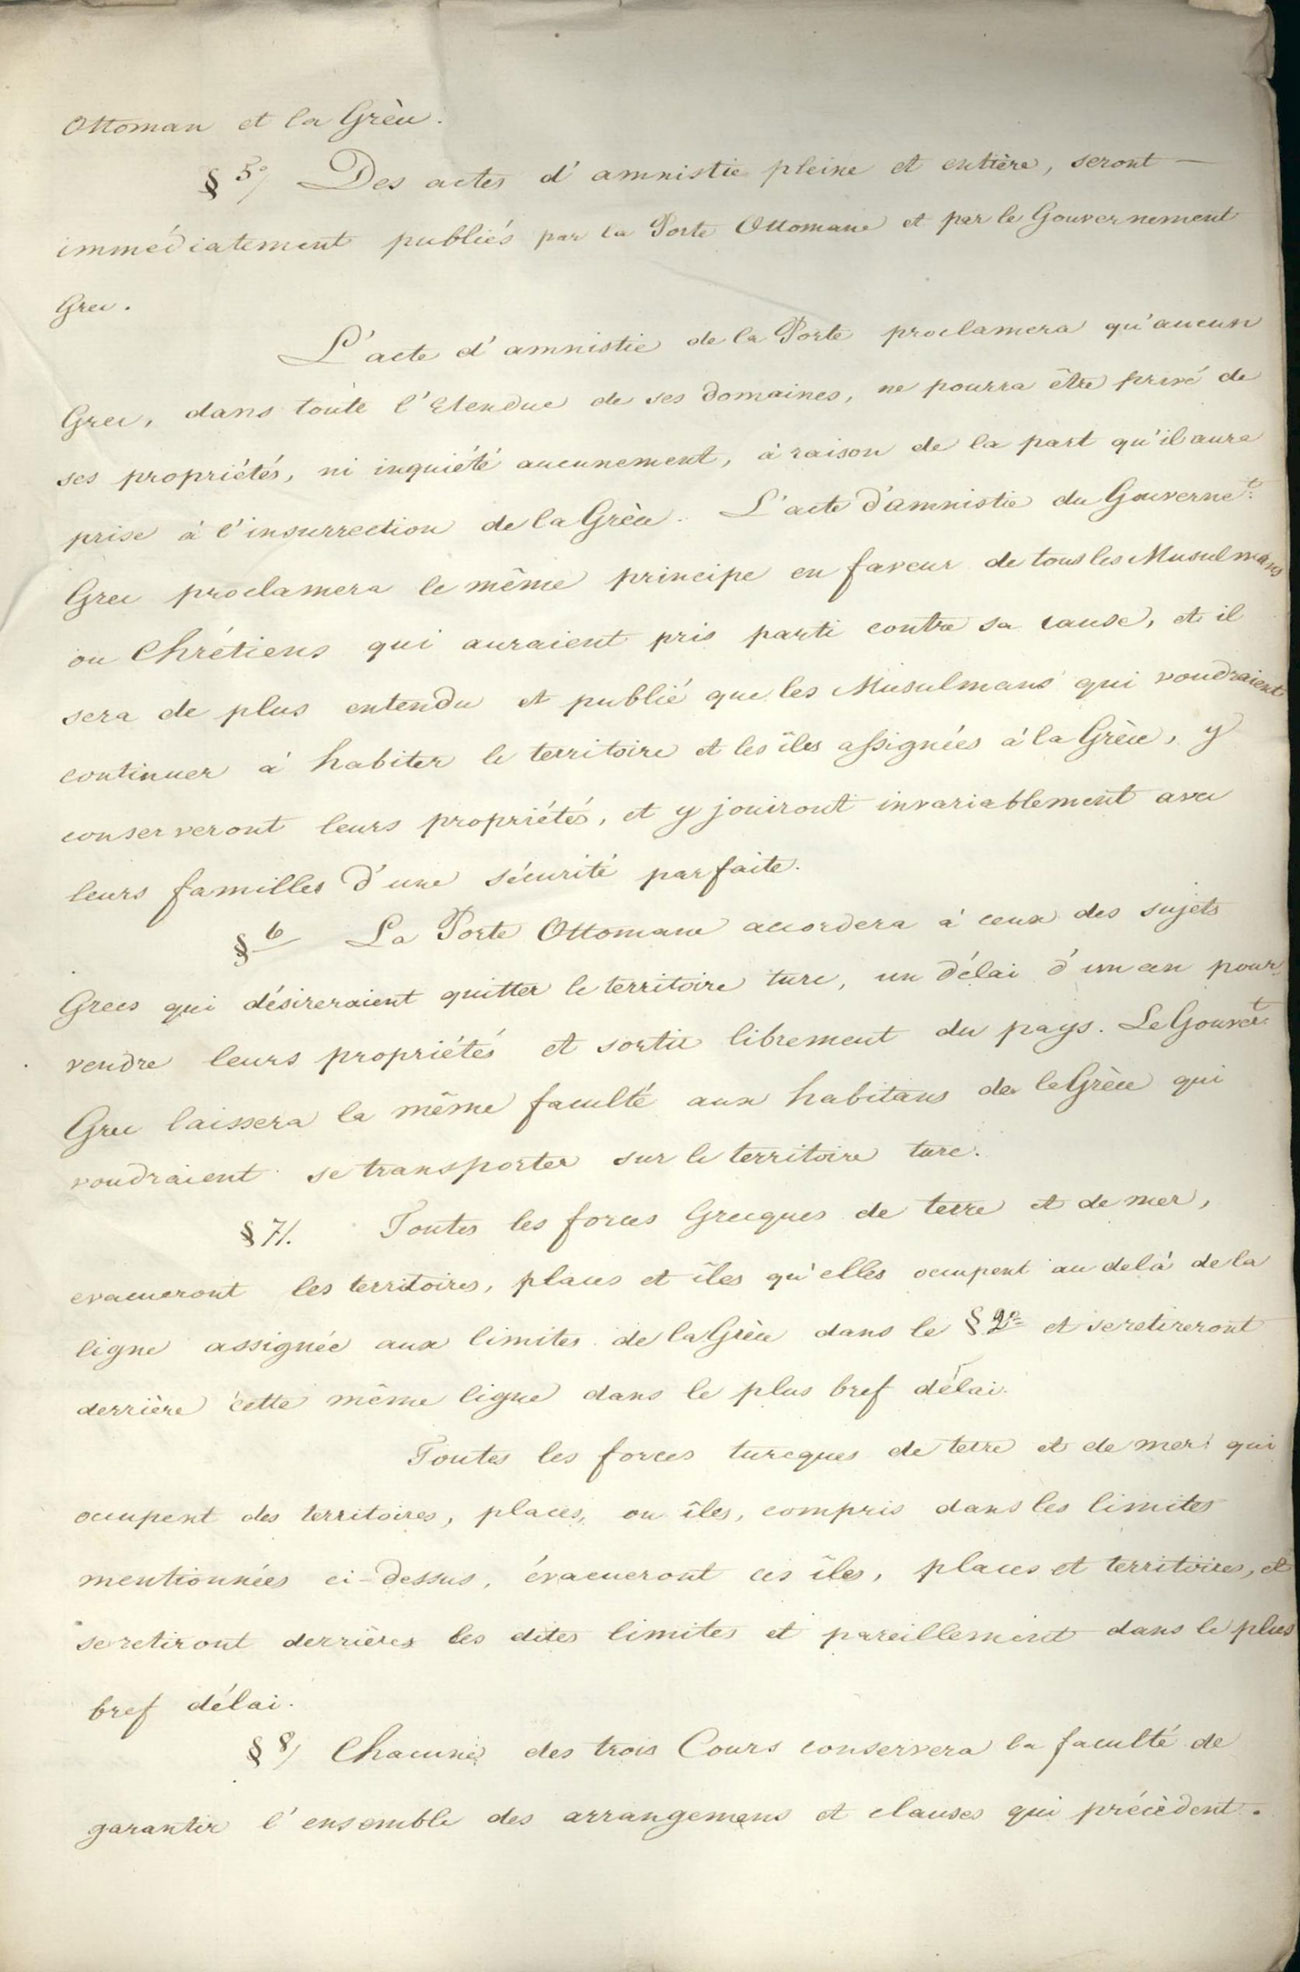 Ottoman et la Grèce.
§ 5°/ Des actes d'amnistie pleine et entière, seront —
immédiatement publiés par la Porte Ottomane et par le Gouvernement
Grec.
L'acte d'amnistie de la Porte proclamera qu'aucun
Grec, dans toute l'Etendue de ses domaines, ne pourra être privé de
ses propriétés, ni inquiété aucunement, à raison de la part qu'il aura
prise à l'insurrection de la Grèce. L'acte d'amnistie du Gouvernet.
Grec proclamera le même principe en faveur de tous les Musulmans
ou Chrétiens qui auraient pris parti contre sa cause, et il
sera de plus entendu et publié que les Musulmans qui voudraient
continuer à habiter le territoire et les îles assignées à la Grèce, y
conserveront leurs propriétés, et y jouiront invariablement avec
leurs familles d'une sécurité parfaite.
§ 6 La Porte Ottomane accordera à ceux des sujets
Grecs qui désireraient quitter le territoire turc, un délai d'un an pour
vendre leurs propriétés et sortir librement du pays. Le Gouvert.
Grec laissera la même faculté aux habitans de la Grèce qui
voudraient se transporter sur le territoire turc.
§ 7/. Toutes les forces Grecques de terre et de mer,
evacueront les territoires, places et îles qu'elles occupent au delà de la
ligne assignée aux limites de la Grèce dans le § 2e et se retireront
derrière cette même ligne dans le plus bref délai.
Toutes les forces turcques de terre et de mer qui
occupent des territoires, places, ou îles, compris dans les limites
mentionnées ci-dessus, évacueront ces îles, places et territoires, et
se retiront derrières les dites limites et pareillement dans le plus
bref délai.
§ 8/ Chacune des trois Cours conservera la faculté de
garantir l'ensemble des arrangemens et clauses qui précèdent.